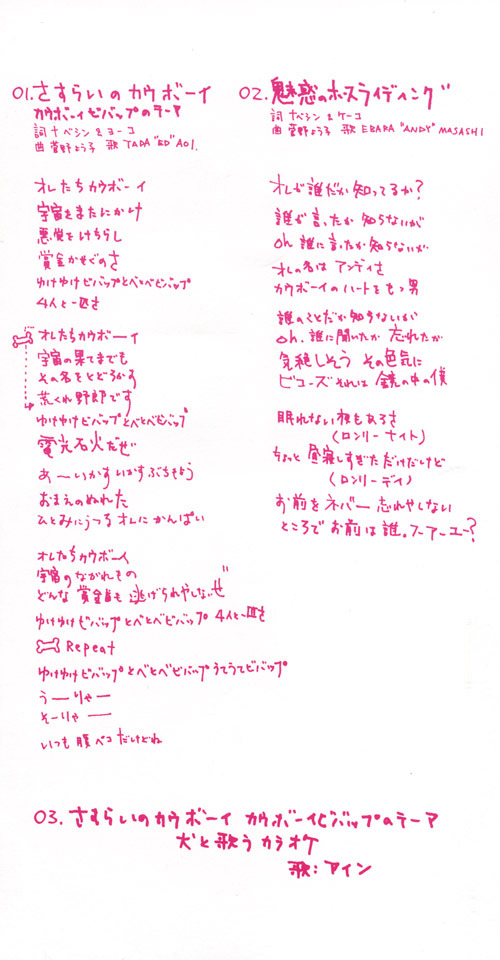 01. さすらいのカウボーイ
カウボーイビバップのテーマ
詞 ナベシン & ヨーコ
曲 菅野よう子 歌 TADA "ED" AOI.
オレたちカウボーイ
宇宙をまたにかけ
悪党をけちらし
賞金かせぐのさ
ゆけゆけビバップとべとべビバップ
4人と一匹さ
オレたちカウボーイ
宇宙の果てまでも
その名をとどろかす
荒くれ野郎です
ゆけゆけビバップとべとべビバップ
電光石火だぜ
あーいかすいかすぶちもよう
おまえのぬれた
ひとみにうつるオレにかんぱい
オレたちカウボーイ
宇宙のながれもの
どんな賞金首も逃げられやしないぜ
ゆけゆけビバップとべとべビバップ 4人と一匹さ
Repeat
ゆけゆけビバップとべとべビバップうてうてビバップ
うーりゃー
そーりゃー
いつも腹ペコだけどね
02. 魅惑のホースライディング
詞 ナベシン & ケーコ
曲 菅野よう子 歌 EBARA "ANDY" MASASHI
オレが誰だか知ってるか?
誰が言ったか知らないが
oh 誰に言ったか知らないが
オレの名はアンディさ
カウボーイのハートをもつ男
誰のことだか知らないが
oh. 誰に聞いたか忘れたが
気絶しそう その色気に
ビコーズそれは鏡の中の僕
眠れない夜もあるさ
(ロンリーナイト)
ちょっと昼寝しすぎただけだけど
(ロンリーデイ)
お前をネバー忘れやしない
ところでお前は誰。フーアーユー?
03. さすらいのカウボーイ カウボーイビバップのテーマ
犬と歌うカラオケ
歌:アイン